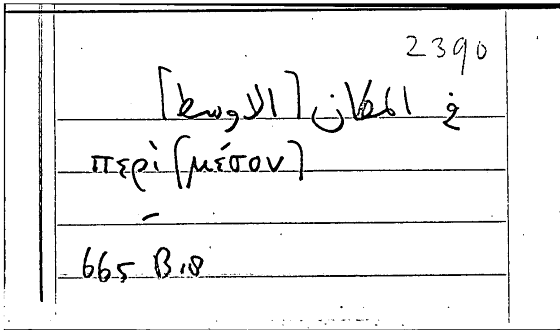 2390
في المكان [الاوسط]
περὶ [μέσον]
–
665 B.18